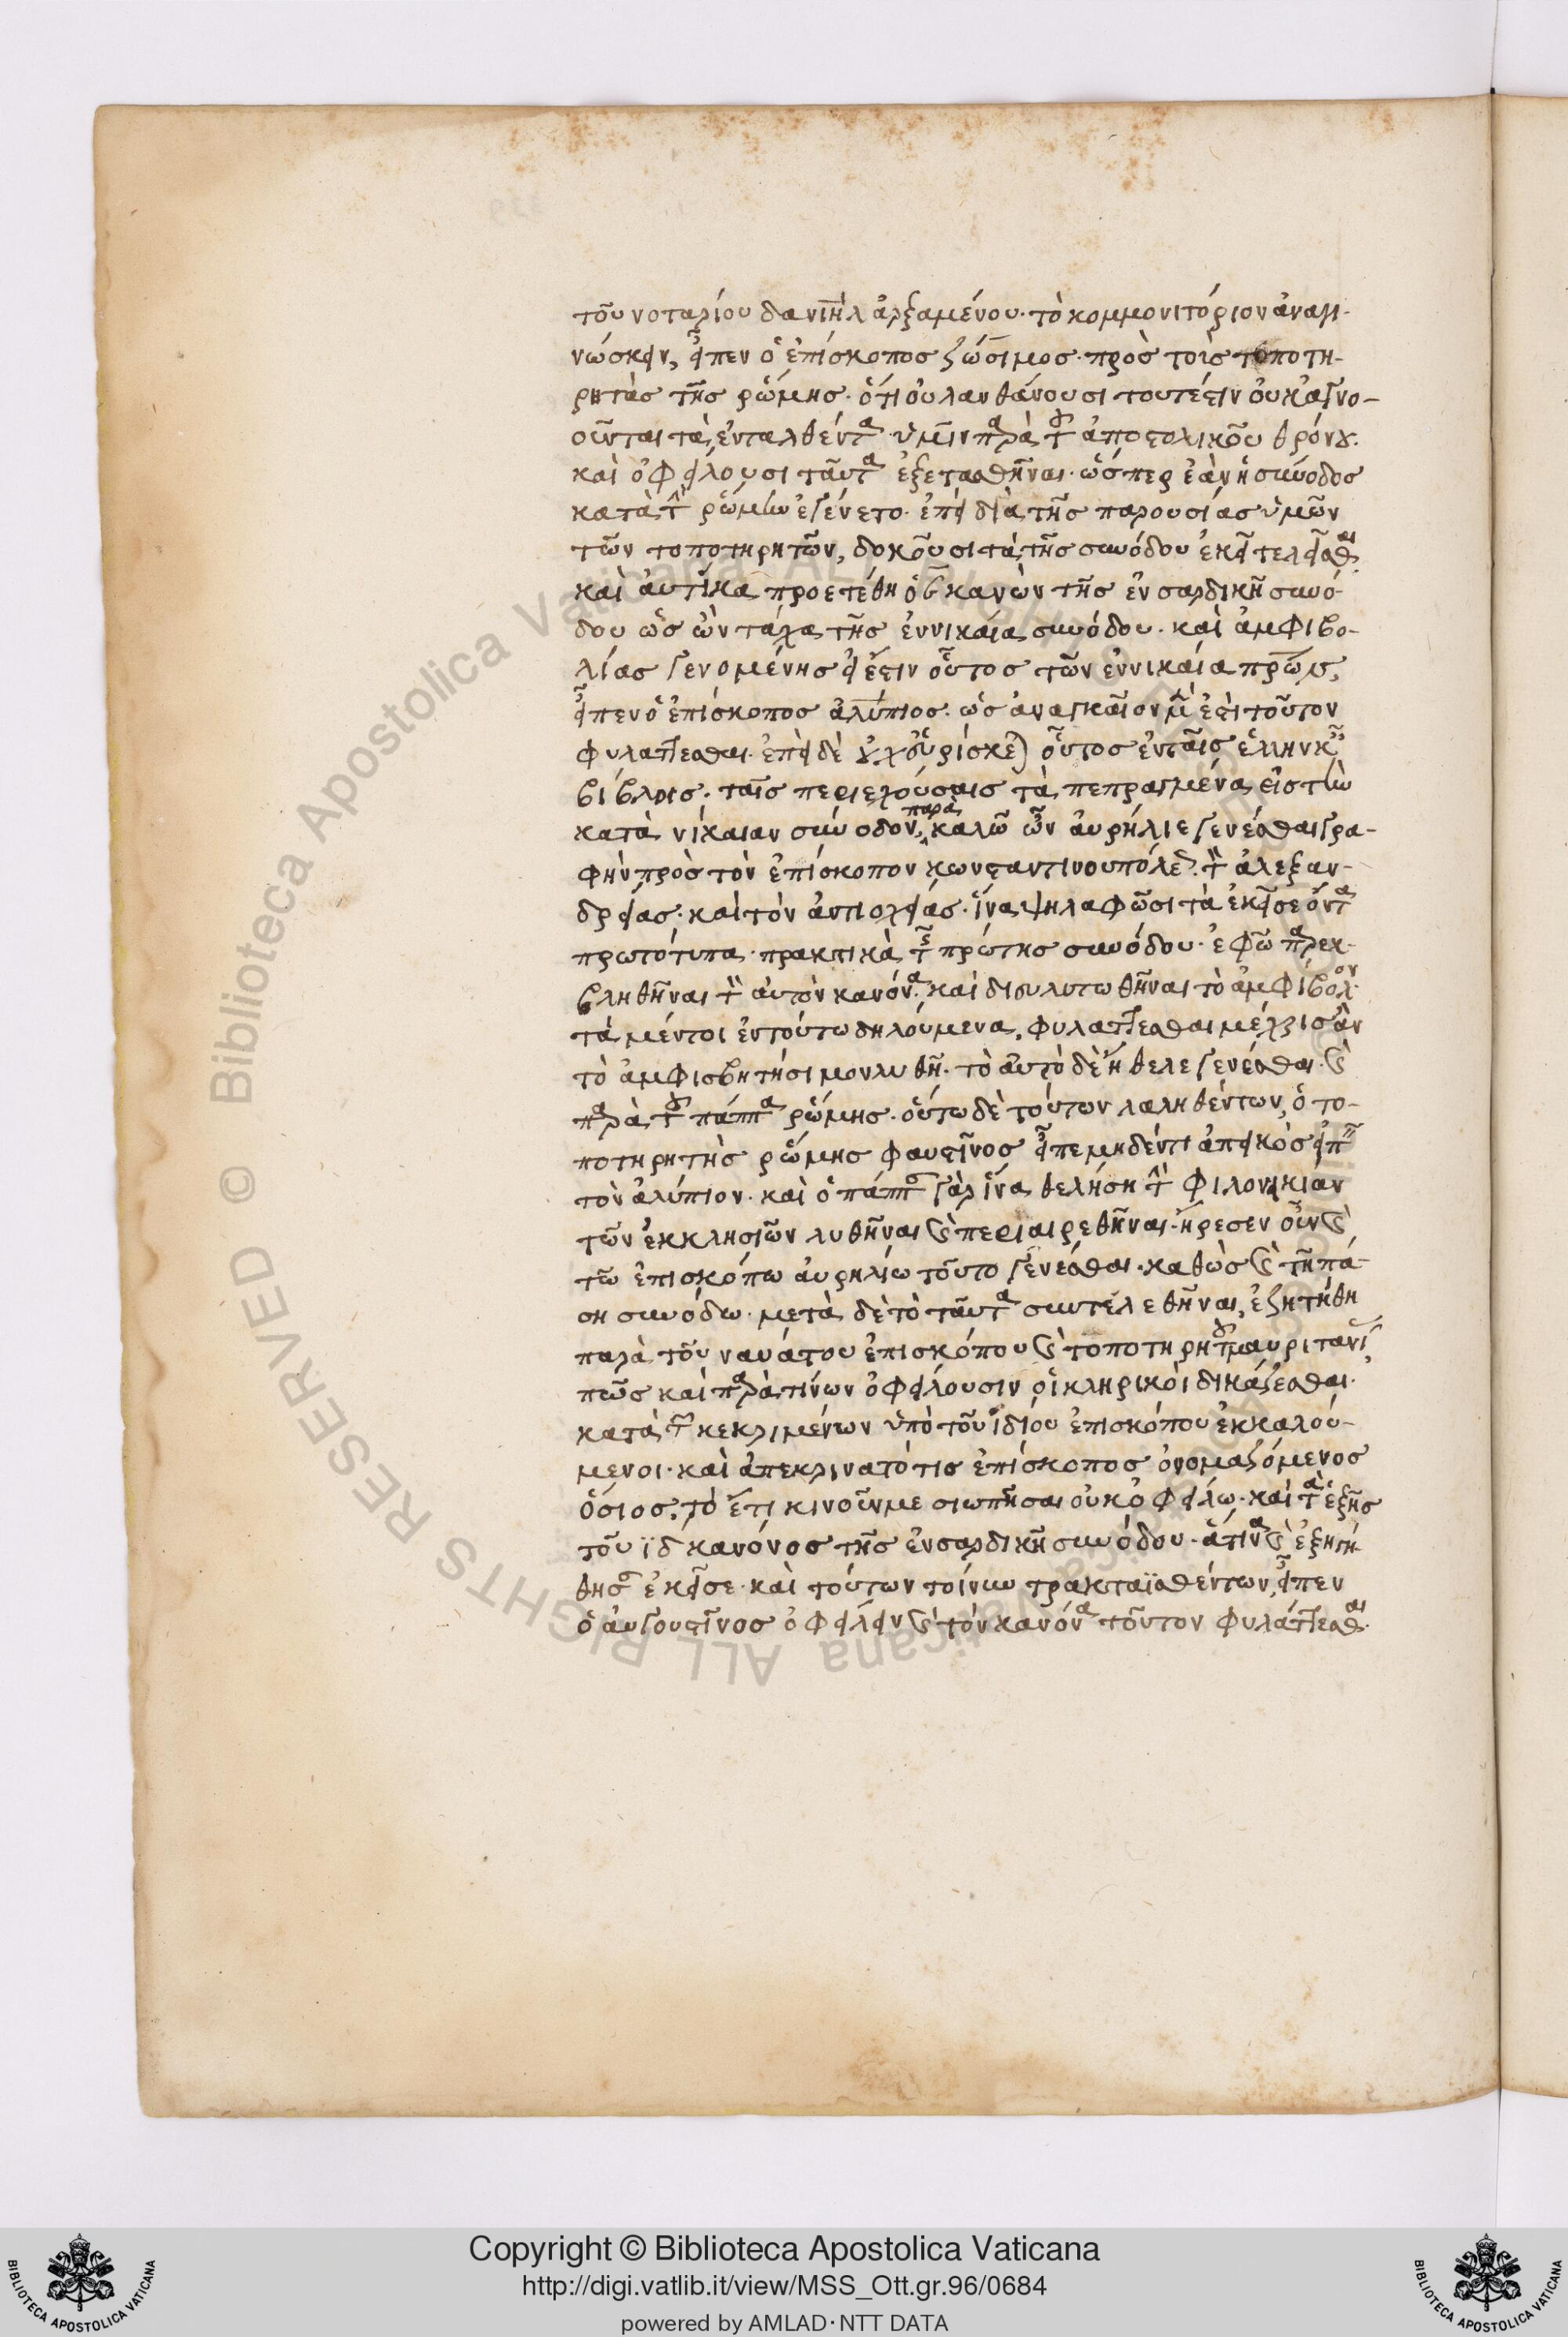 τοῦ νοταρίου δανιὴλ ἀρξαμένου· τὸ κομμονιτόριον ἀναγι-
νώσκειν, εἶπεν ὁ ἐπίσκοπος ζώσιμος· πρὸς τοὶς τοποτη-
ρητὰς τῆς ῥώμης· ὅτι οὐ λανθάνουσι τουτέστιν οὐκ ἀγνο-
οῦνται τὰ ἐνταλθέντα ὑμῖν παρὰ τοῦ ἀποστολικοῦ θρόνου.
καὶ ὀφείλουσι ταῦτα ἐξετασθῆναι· ὥσπερ ἐὰν ἡ σύνοδος
κατὰ τὴν ῥώμην ἐγένετο· ἐπεὶ διὰ τῆς παρουσίας ὑμῶν
τῶν τοποτηρητῶν, δοκοῦσι τὰ τῆς συνόδου ἐκεῖ τελεῖσθαι.
καὶ αὐτίκα προετέθη ὁ ϛ κανὼν τῆς ἐν σαρδικῇ συνό-
δου ὡς ὢν τάχα τῆς ἐν νικαία συνόδου· καὶ ἀμφιβο-
λίας γενομένης εἰ ἔστιν οὗτος τῶν ἐν νικαία πρων,
εἶπεν ὁ ἐπίσκοπος ἀλύπιος· ὡς ἀναγκαῖον μὲν ἐστὶ τοῦτον
φυλάττεσθαι· ἐπεὶ δὲ οὐχ εὑρίσκεται οὗτος ἐν ταῖς ἑλληνικαῖς
βίβλοις· ταῖς περιεχούσαις τὰ πεπραγμένα εἰς τὴν
κατὰ νίκαιαν σύνοδον, παρακαλῶ ὧν αὐρήλιε γενέσθαι γρα-
φὴν πρὸς τὸν ἐπίσκοπον κωνσταντινουπόλεως· τὸν ἀλεξαν-
δρείας· καὶ τὸν ἀντιοχείας· ἵνα ψηλαφῶσι τὰ ἐκεῖσε ὄντα
πρωτότυπα πρακτικὰ τῆς πρώτης συνόδου· ἐφῶ παρεκ-
βληθῆναι τὸν αὐτὸν κανόνα· καὶ διευλυτωθῆναι τὸ ἀμφίβολον·
τὰ μέντοι ἐν τούτω δηλούμενα, φυλάττεσθαι μέχρις ἂν
τὸ ἀμφισβητήσιμον λυθῆ· τὸ αὐτὸ δὲ ἤθελε γενέσθαι καὶ
παρὰ τοῦ πάππα ῥώμης· οὕτω δὲ τούτων λαληθέντων, ὁ το-
ποτηρητὴς ῥώμης φαυστῖνος εἶπε μηδέν τι ἀπεικὸς εἰπεῖν
τὸν ἀλύπιον· καὶ ὁ πάππας γὰρ ἵνα θελήση τὴν φιλονεικίαν
τῶν ἐκκλησιῶν λυθῆναι καὶ περιαιρεθῆναι· ἤρεσεν οὖν καὶ
τῶ ἐπισκόπω αὐρηλίω τοῦτο γενέσθαι· καθὼς καὶ τῆ πά-
ση συνόδω· μετὰ δὲ τὸ ταῦτα συντελεθῆναι, ἐζητήθη
παρὰ τοῦ ναυάτου ἐπισκόπου καὶ τοποτηρητοῦ μαυριτανίας,
πῶς καὶ παρὰ τίνων ὀφείλουσιν οἱ κληρικοὶ δικάζεσθαι·
κατὰ τῶν κεκριμένων ὑπὸ τοῦ ἰδίου ἐπισκόπου ἐκκαλού-
μενοι· καὶ ἀπεκρίνατό τις ἐπίσκοπος ὀνομαζόμενος
ὅσιος· τὸ ἔτι κινοῦν με σιωπῆσαι οὐκ ὀφείλω· καὶ τὰ ἑξῆς
τοῦ ιδ κανόνος τῆς ἐν σαρδικῆ συνόδου· ἅτινα καὶ ἐξηγή-
θησαν ἐκεῖσε· καὶ τούτων τοίνυν τρακταϊσθέντων, εἶπεν
ὁ αὐγουστῖνος ὀφείλειν καὶ τὸν κανόνα τοῦτον φυλάττεσθαι.
Copyright © Biblioteca Apostolica Vaticana
http://digi.vatlib.it/view/MSS_Ott.gr.96/0684
powered by AMLAD·NTT DATA
BIBLIOTECA APOSTOLICA VATICANA
BIBLIOTECA APOSTOLICA VATICANA